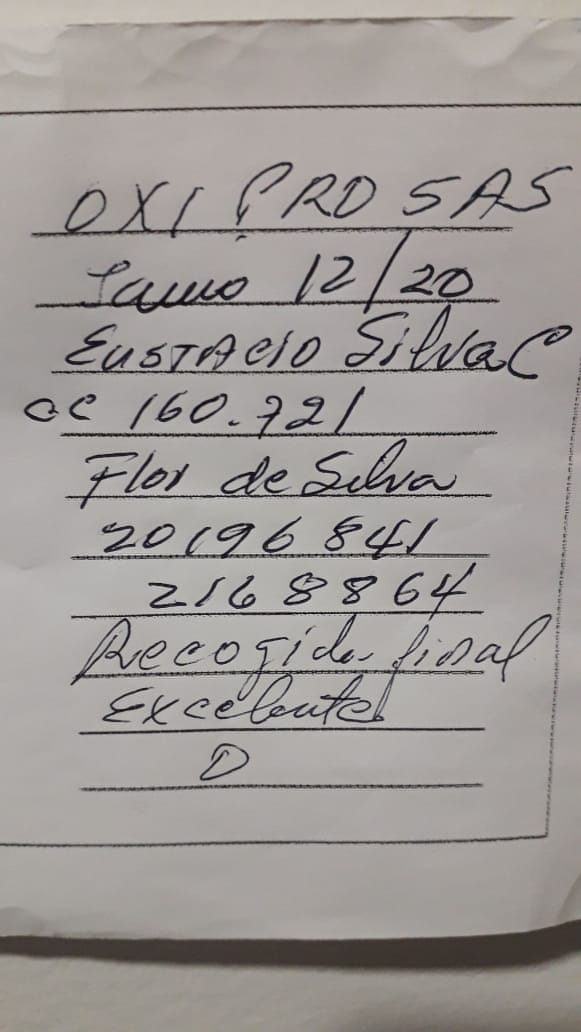 OXIPRO SAS
Junio 12/20
EUSTACIO Silva C
cc 160.721
Flor de Silva
20196841
2168864
Recogida final
Excelente
D